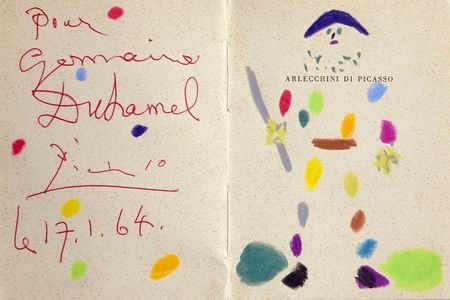 Pour
Germaine
Duhamel
Picasso
le 17.1.64.
ARLECCHINI DI PICASSO